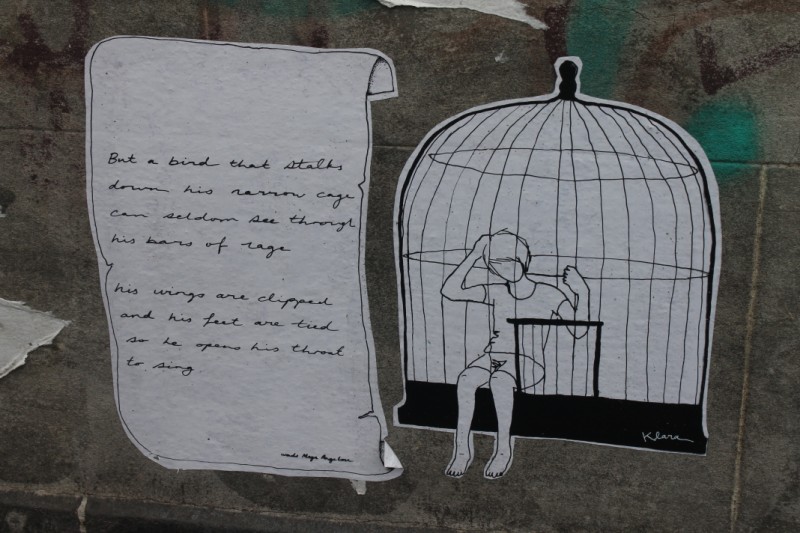 But a bird that stalks
down his narrow cage
can seldom see through
his bars of rage
his wings are clipped
and his feet are tied
so he opens his throat
to sing.
words Maya Angelou
Klara